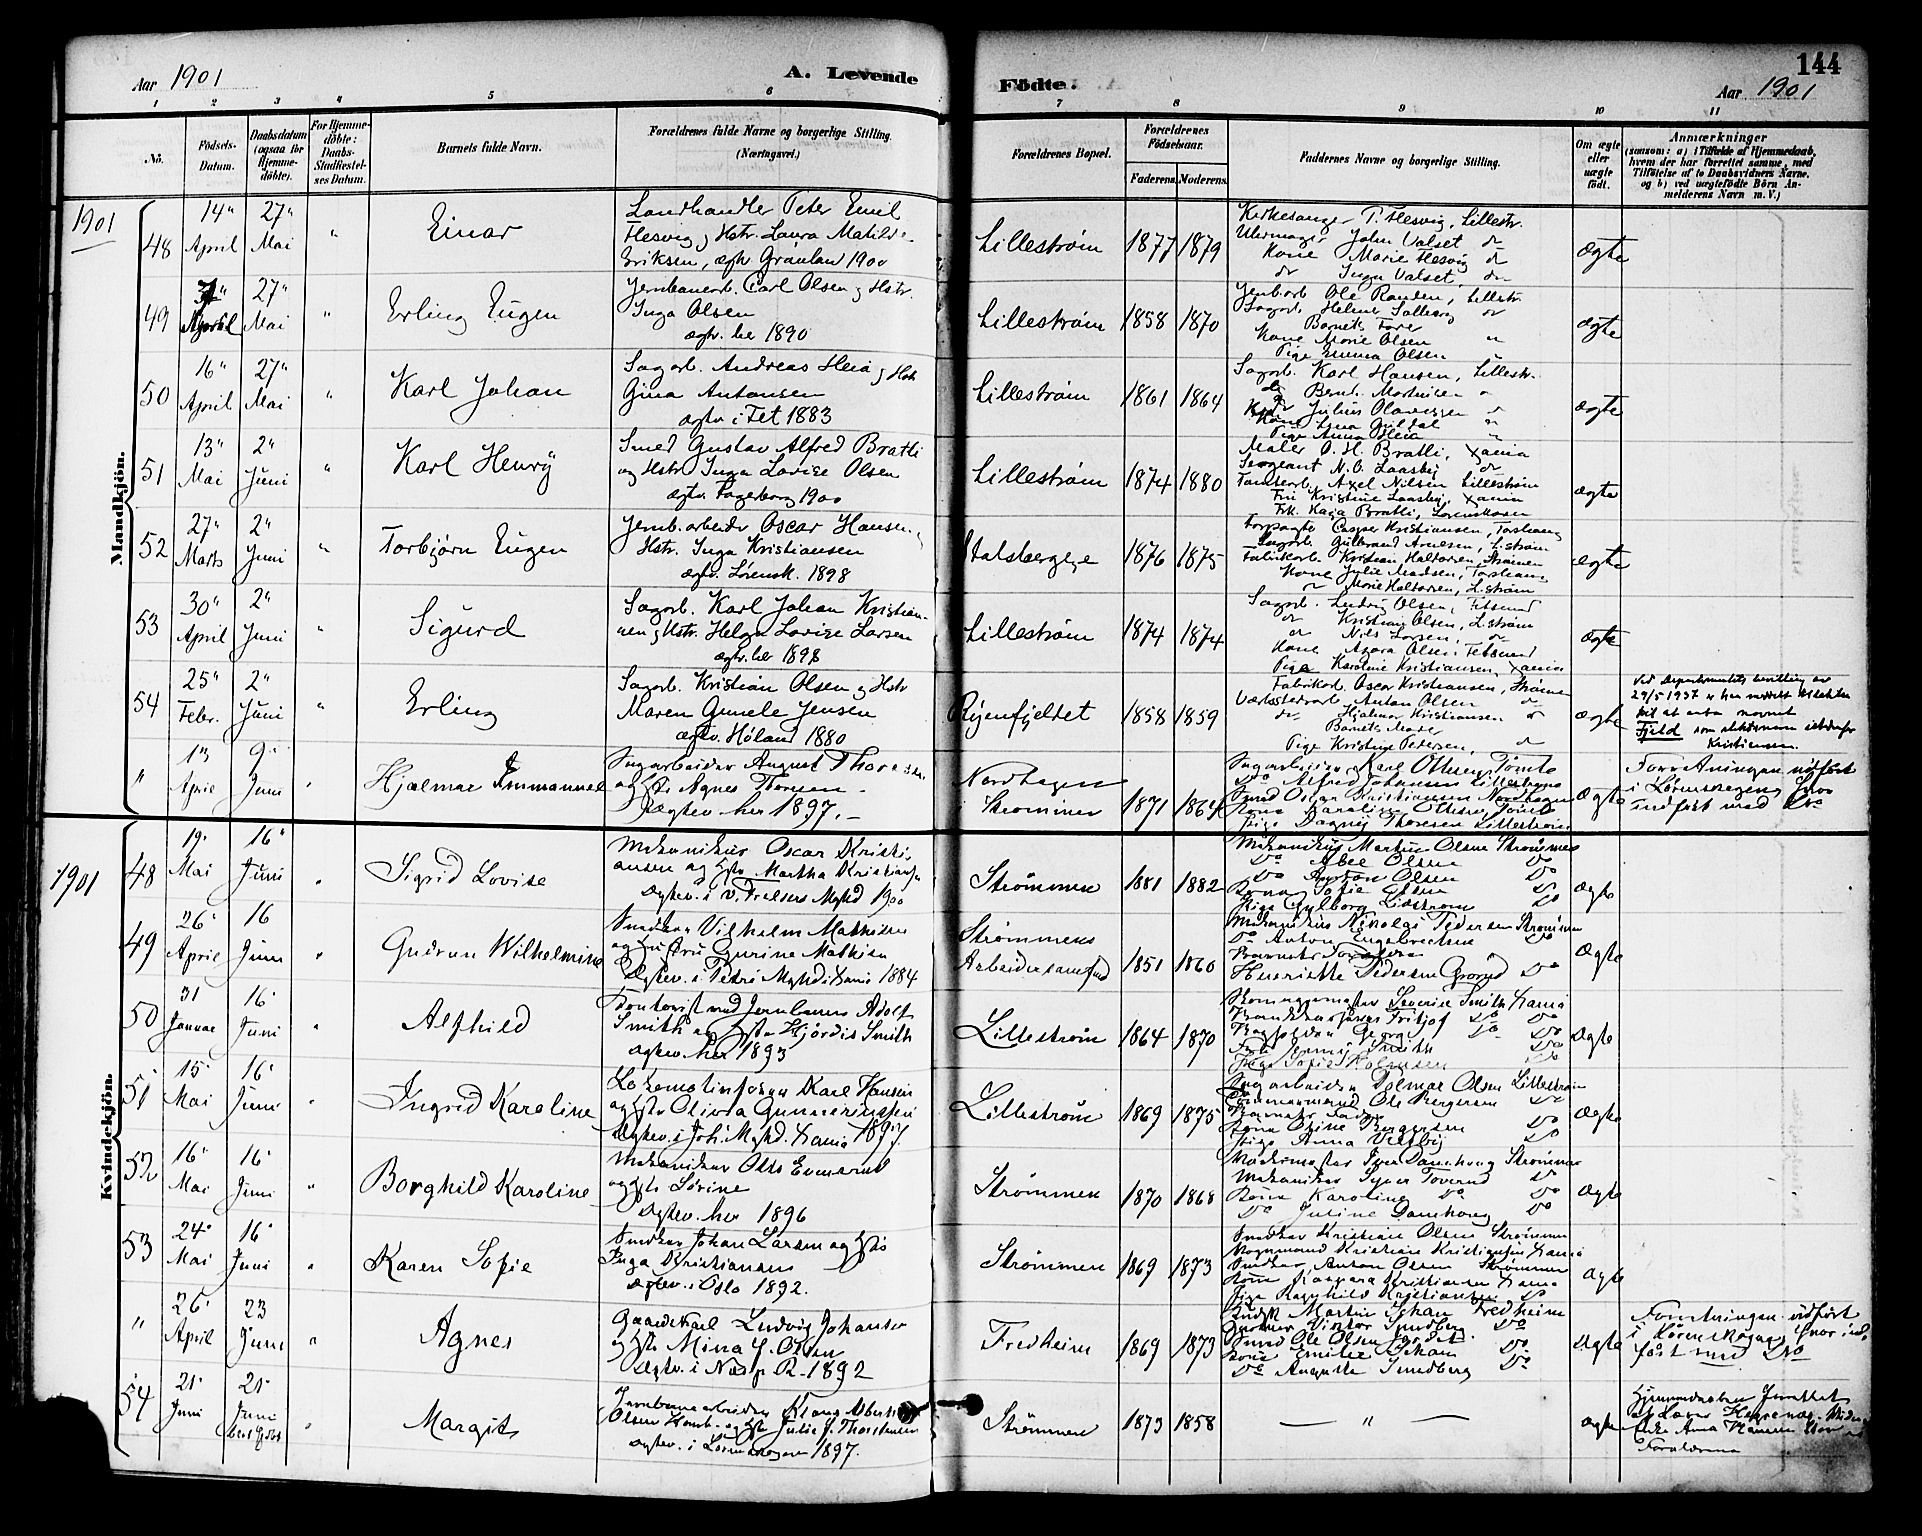 Aar 1901
A. Levende
Födte.
144
Aar 1901
1 2 3 4 5 6 7 8 9 10 11
No.
Födsels-Datum.
Daabsdatum (ogsaa for Hjemme-döbte).
For Hjemme-döbte: Daabs-Stadfæstel-ses Datum.
Barnets fulde Navn.
Forældrenes fulde Navne og borgerlige Stilling. (Næringsvei.)
Forældrenes Bopæl.
Forældrenes Födselsaar.
Faderens. Moderens.
Faddernes Navne og borgerlige Stilling.
Om ægte eller uægte födt.
Anmærkninger
(saasom: a) i Tilfælde af Hjemmedaab,
hvem der har forrettet samme, med
Tilföielse af to Daabsvidners Navne,
og b) ved uægtefödte Börn An-
melderens Navn m. V.)
Mandkjön.
1901
48 14" April 27" Mai " Einar
Landhandler Peter Emil
Hesvig og Hstr. Laura Matilde
Eriksen, ægtv. Grønland 1900
Lillestrøm 1877 1879
Kirkesanger T. Hesvig, Lillestr.
Uhrmager John Valset do
Kone Marie Hesvig do
do Inga Valset, do
ægte
49 April 27" Mai " Erling Eugen
Jernbanearb. Carl Olsen og Hstr.
Inga Olsen
ægtv. her 1890
Lillestrøm 1858 1870
Jernb.arb Ole Randen, Lillestr.
Sagarb. Helmer Solberg do
Barnets Fader
Kone Marie Olsen
Pige Emma Olsen
ægte
50 16" April 27" Mai " Karl Johan
Sagarb. Andreas Heia og Hstr
Gina Antonsen
ægtv. i Fet 1883
Lillestrøm 1861 1864
Sagarb. Karl Hansen, Lillestr.
do Bernt Martinsen
Julius Olavesen
Kone Lina Guldal
Pige Anna Heia
ægte
51 13" Mai 2" Juni " Karl Henry
Smed Gustav Alfred Bratli
og Hstr. Inga Lovise Olsen
ægtv. Fagerborg 1900
Lillestrøm 1874 1880
Maler O. H. Bratli, Xania
Sergeant N. O. Laasby do
Tomtearb. Axel Nilsen Lillestrøm
Fru Kristine Laasby, Xania
Frk. Kaja Bratli, Lørenskogen
ægte
52 27" Marts 2" Juni " Torbjørn Eugen
Jernb.arbeider Oscar Hansen og
Hstr. Inga Kristiansen
ægtv. Lørensk. 1898
Stalsbergeje 1876 1875
Forpagter Casper Kristiansen, Torshaug
Sagarb. Gulbrand Arnesen, L.strøm
Fabrikarb. Kristian Halvorsen, Strømmen
Kone Julie Madsen, Torshaug
do Marie Halvorsen, L.strøm
ægte
53 30" April 2" Juni " Sigurd
Sagarb. Karl Johan Kristian-
sen og Hstr. Helga Lovise Larsen
ægtv. her 1898
Lillestrøm 1874 1874
Sagarb. Ludvig Olsen, Fetsund
do Kristian Olsen, L.strøm
do Nils Larsen, do
Kone Olsen, Fetsund
Pige Karoline Kristiansen, Xania
ægte
54 25" Febr. 2" Juni " Erling
Sagarb. Kristian Olsen og Hstr
Maren Gunele Jensen
ægtv. Høland 1880
Ryenfjeldet 1858 1859
Fabrikarb. Oscar Kristiansen, Strømmen
Værkstedsarb. Anton Olsen do
do Hjalmar Kristiansen do
Barnets Moder
Pige Kristine Pedersen, do
ægte
Ved departementets bevilling av
29/5 1937 er han meddelt tilladelse
til at anta navnet
Fjeld som slektsnavn istedenfor
Kristiansen.
" 13 April 9. Juni " Hjalmar Emmanuel
Sagarbeider August Thoresen
og Agnes Thoresen
Ægtev. her 1897.
Nordhagen
Strømmen 1871 1864
Sagarbeider Karl Ottesen Tomte
Do Alfred Johansen Lillestrøm
Smed Oscar Kristiansen Nordhagen
Kone Karoline Ottesen Tomte
Pige Dagny Thoresen Lillestrøm
ægte
Forretningen udført
i Lørenskogen hvor
indført med No
Kvindekjön.
1901
48 19. Mai 16" Juni " Sigrid Lovise
Mekanikus Oscar Kristi-
ansen og Hstr Martha Kristiansen
Ægtev. i V. Frelsers Mghd 1900
Strømmen 1881 1882
Mekanikus Martin Olsen Strømmen
Do Abel Olsen Do
Do Anton Olsen Do
Kone Sofie Olsen Do
Pige Gulborg Lidstrøm Do
ægte
49 26" April 16 Juni " Gudrun Wilhelmine
Snedker Vilhelm Mathisen
og Hustru Gurine Mathisen
Ægtev. i Petri Mghd i Xania 1884
Strømmens
Arbeidersamfund 1851 1860
Mekanikus Nikolai Pedersen Strømmen
Do Anton Engebretsen Do
Barnets Forældre
Henriette Pedersen Grorud Do
ægte
50 31 Januar 16" Juni " Alfhild
Kontorist ved Jernbanen Adolf
Smith og Hstr Hjørdis Smith
Ægtev. her 1893
Lillestrøm 1864 1870
Severine Smith Xania
Fritjof Do Do
Georg Do Do
Smith Do
Pige Sofie Do
ægte
51 15" Mai 16" Juni " Ingrid Karoline
Lokomotivfører Karl Hansen
og Hstr Olivia Gunnerinsen
Ægtev. i Joh. Mghd. Xania 1897.
Lillestrøm 1869 1875
Sagarbeider Delmar Olsen Lillestrøm
Tømmermand Ole Bergersen Do
Barnets Fader
Kone Oline Bergersen Do
Pige Anna Visthy Do
ægte
52 16" Mai 16" Juni " Borghild Karoline
Mekaniker Otto Evensrud
og Hstr Sørine
Ægtev. her 1896
Strømmen 1870 1868
Iver Damhaug Strømmen
Mekaniker Syver Toverud Do
Kone Karoline Do Do
Do Juline Damhaug Do
ægte
53 24" Mai 16" Juni " Karen Sofie
Snedker Johan Larsen og Hstr
Inga Kristiansen
Ægtev. i Oslo 1892.
Strømmen 1869 1873
Snedker Kristian Olsen Strømmen
Vognmand Kristian Kristiansen Xania
Snedker Anton Olsen Strømmen
Kone Kaspara Kristiansen Xania
Pige Ragnhild Kristiansen Do
ægte
" 26" April 23 Juni " Agnes
Gaardskarl Ludvig Johansen
og Hstr Mina J. Olsen
Ægtev. i Næs p. R. 1892
Fredheim 1869 1873
Kudsk Martin Johan Fredheim
Gartner Viktor Sundberg Do
Smed Ole Olsen Jordet Do
Kone Emilie Johan Do
Do Augusta Sundberg Do
ægte
Forretningen udført
i Lørenskogen hvor ind-
ført med No
54 21" Juni 21" Juni " Margit
Jernbanearbeider Klaus Albert
Olsen og Hstr Julie J. Thorstensen
Ægtev. i Lørenskogen 1897.
Strømmen 1873 1858
— " —
ægte
Hjemmedaaben forrettet
af
Enke Anna Hansen
Forældrene